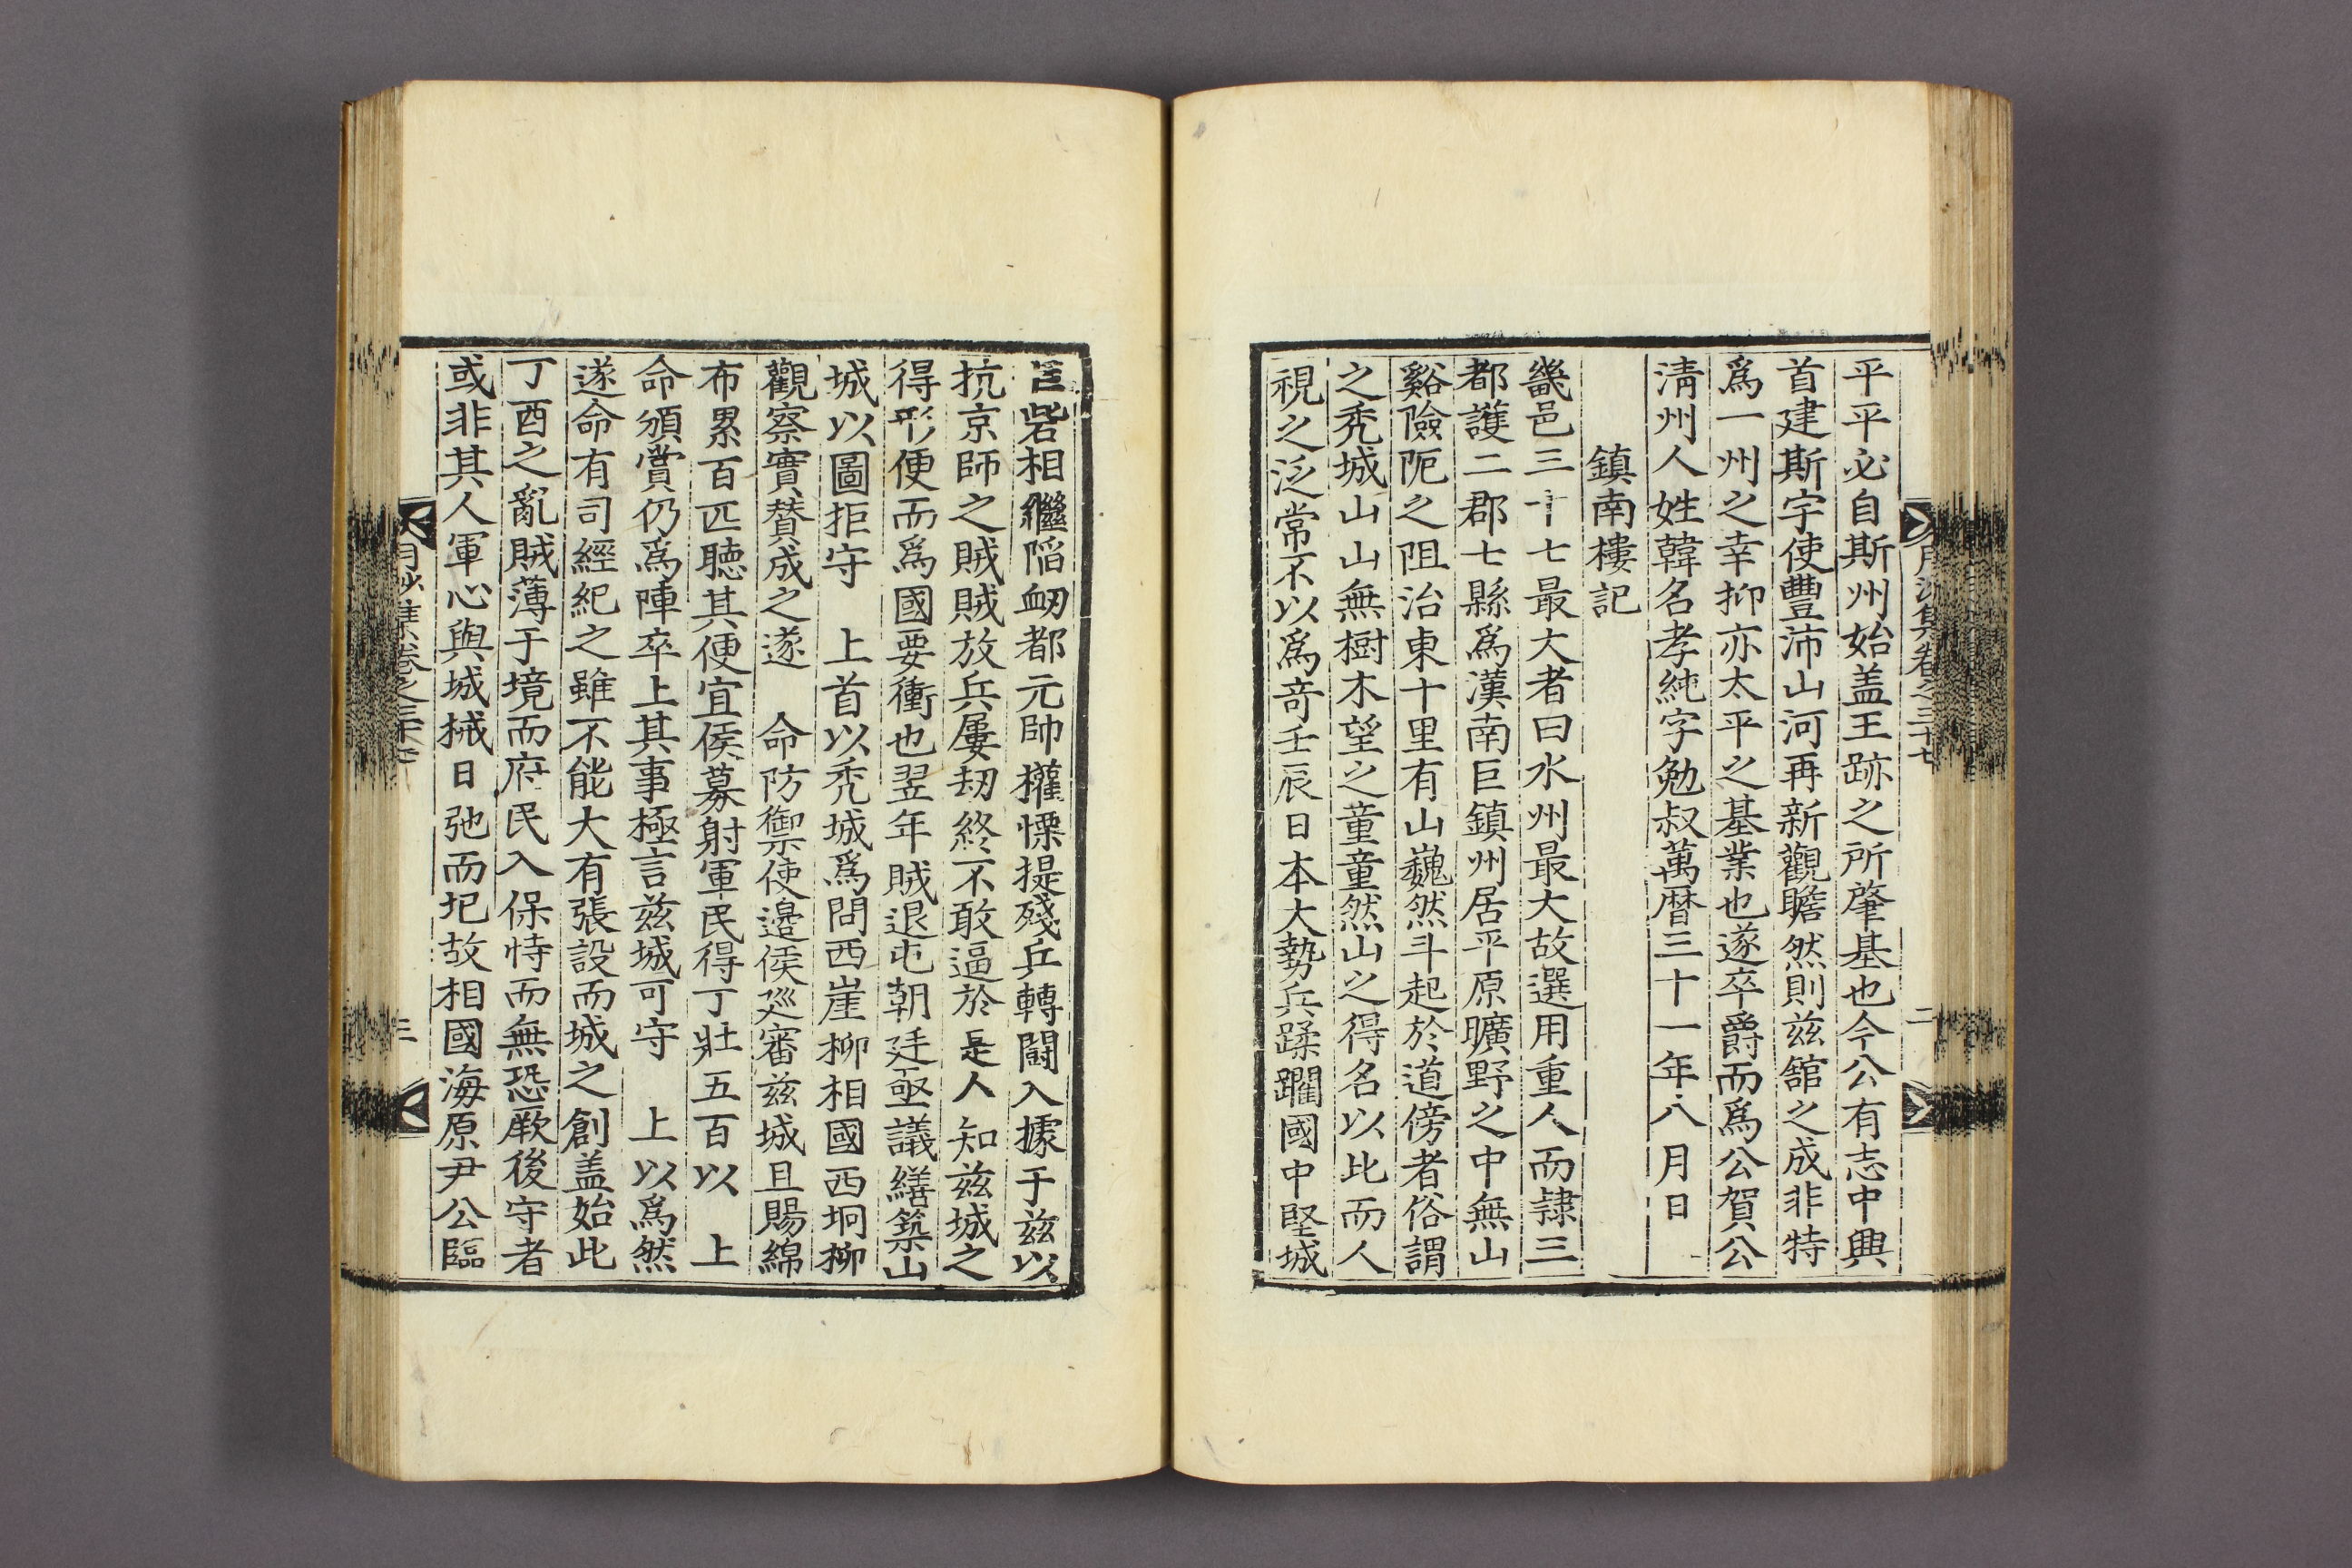 平平必自斯州始盖王跡之所肇基也今公有志中興
首建斯宇使豐沛山河再新觀瞻然則玆舘之成非特
爲一州之幸抑亦太平之基業也遂卒爵而爲公賀公
淸州人姓韓名孝純字勉叔萬曆三十一年八月日
鎮南樓記
畿邑三十七最大者曰水州最大故選用重人而隷三
都護二郡七縣爲漢南巨鎮州居平原曠野之中無山
谿險阨之阻治東十里有山巍然斗起於道傍者俗謂
之禿城山山無樹木望之童童然山之得名以此而人
視之泛常不以爲竒壬辰日本大勢兵蹂躪國中堅城
巨砦相繼陷衂都元帥權慄提殘兵轉鬪入據于玆以
抗京師之賊賊放兵屢刼終不敢逼於是人知玆城之
得形便而爲國要衝也翌年賊退屯朝廷亟議繕築山
城以圖拒守 上首以禿城爲問西崖柳相國西坰柳
觀察實賛成之遂 命防禦使邊侯巡審玆城且賜綿
布累百匹聽其便宜侯募射軍民得丁壯五百以 上
命頒賞仍爲陣卒上其事極言玆城可守 上以爲然
遂命有司經紀之雖不能大有張設而城之創盖始此
丁酉之亂賊薄于境而府民入保恃而無恐厥後守者
或非其人軍心與城械日弛而圮故相國海原尹公臨
月沙集卷之三十七
二
三